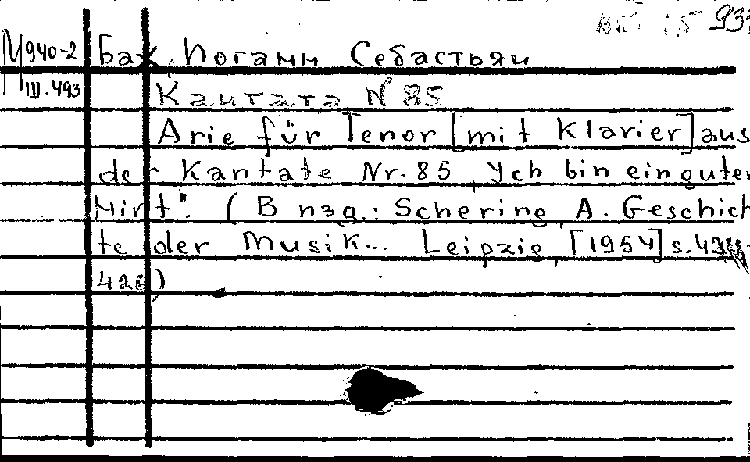 933
М940-2 Бах, Иоганн Себастьян
III.493 Кантата № 85
Arie für Tenor [mit Klavier] aus
der Kantate Nr. 85 „Ych bin ein guter
Hirt". (В изд.: Schering, A. Geschich
te der Musik... Leipzig, [1954] s.